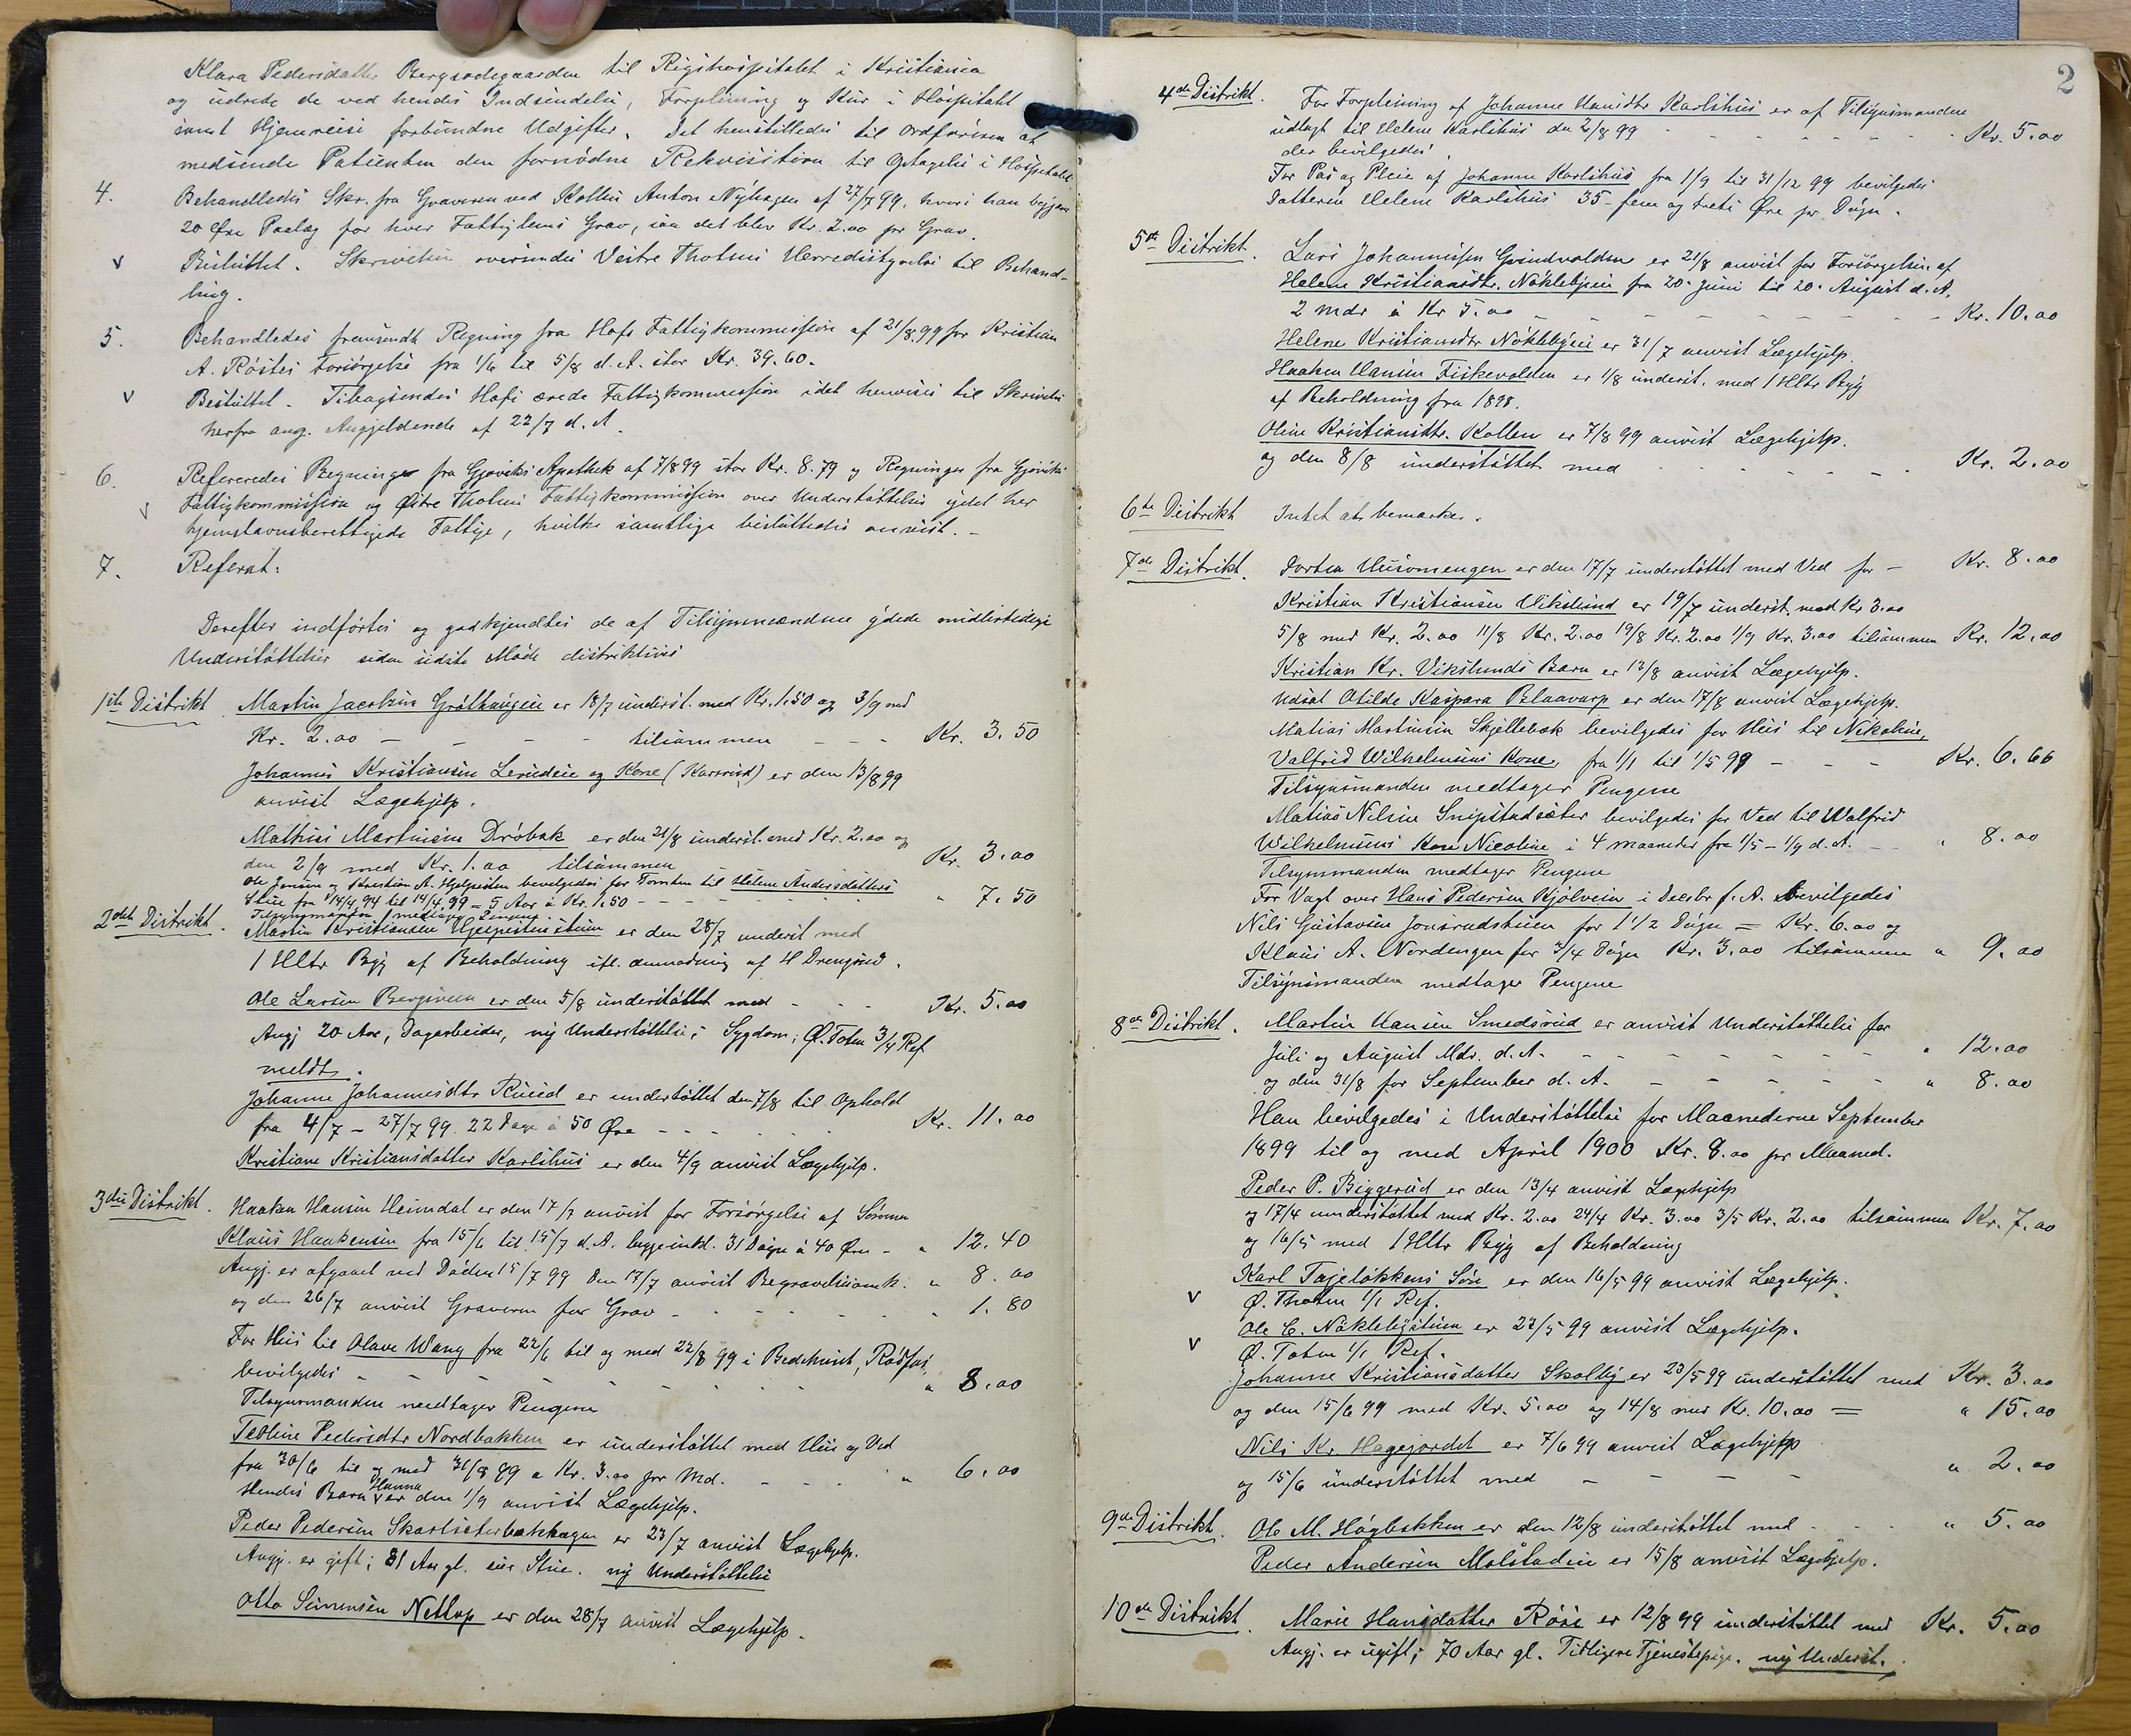 Klara Pedersdatter Bergsodegaarden til Rigshospitalet i Kristiania
og udrede de ved hendes Indsendelse, Forpleining og Kur i Hospitalet
samt Hjemreise forbundne Udgifter. Det henstilledes til Ordføreren at
medsende Patienten den fornødne Rekvisition til Optagelse i Hospitalet
4. Behandledes Skr. fra Graveren ved Kolbu Anton Nyhagen af 27/7 99, hvori han begjærer
20 Øre Paalæg for hver Fattiglems Grav, saa det blev Kr. 2.00 pr Grav.
v Besluttet. Skrivelsen oversendes Vestre Thotens Herredsstyrelse til Behand-
ling.
5. Behandledes fremsendt Regning fra Hofs Fattigkommission af 21/8.99 for Kristian
A. Røstes Forsørgelse fra 1/6 til 5/8 d. A. stor Kr. 39.60.
v Besluttet. Tilbagesendes Hofs ærede Fattigkommission idet henvises til Skrivelse
herfra ang. Angjeldende af 22/7 d. A.
6. Refereredes Regninger fra Gjøviks Apothek af 7/8 99 stor Kr. 8.79 og Regninger fra Gjøviks
v Fattigkommission og Østre Thotens Fattigkommission over Understøttelser ydet her
hjemstavnsberettigede Fattige, hvilke samtlige besluttedes anvist. -
7. Referat:
Derefter indførtes og godkjendtes de af Tilsynmændene ydede midlertidige
Understøttelser siden sidste Møde distriktsvis
1ste Distrikt. Martin Jacobsen Gråthaugen er 18/7 underst. med Kr. 1.50 og 3/9 med
Kr. 2.00 - - - - tilsammen - - - Kr. 3.50
Johannes Kristiansen Lerudeie og Kone (Karsrud) er den 13/8 99
anvist Lægehjelp.
Mathias Martinsen Drøbak er den 21/8 underst. med Kr. 2.00 og
den 2/9 med Kr. 1.00 tilsammen Kr. 3.00
Ole Jensen og Kristian A. Hjelpesten bevilgedes for Tomten til Helene Andersdatters
Stue fra 14/4 94 til 14/4 99 = 5 Aar à Kr. 1.50 - - - - " 7.50
Tilsynsmanden medtager Pengene.
2det Distrikt. Martin Kristiansen Hjelpestenstuen er den 28/7 underst med
1 Hltr Byg af Beholdning ifl. anmodning af H Drengsrud.
Ole Larsen Bergsveen er den 5/8 understøttet med - - - Kr. 5.00
Angj 20 Aar, Dagarbeider, ny Understøttelse; Sygdom; Ø. Toten 3/4 Ref
meldt.
Johanne Johannesdtr Ruud er understøttet den 7/8 til Ophold
fra 4/7 - 27/7 99. 22 Dage à 50 Øre - - - - Kr. 11.00
Kristiane Kristiansdatter Karlshus er den 4/9 anvist Lægehjelp.
3die Distrikt. Haaken Hansen Heimdal er den 17/7 anvist for Forsørgelse af Sønnen
Klaus Haakensen fra 15/6 til 15/7 d. A. begge inkl. 31 Døgn à 40 Øre - " 12.40
Angj. er afgaaet ved Døden 15/7 99 Den 17/7 anvist Begravelsesomk. " 8.00
og den 26/7 anvist Graveren for Grav - - - - " 1.80
For Hus til Olave Wang fra 22/6 til og med 22/8 99 i Bedehuset, Rødfos,
bevilgedes - - - - - - " 8.00
Tilsynsmanden medtager Pengene
Teoline Pedersdtr Nordbakken er understøttet med Hus og Ved
fra 30/6 til og med 31/8 99 a Kr. 3.00 pr Md. - - - " 6.00
Hendes Barn Hanna er den 1/9 anvist Lægehjelp.
Peder Pedersen Skarlseterbækhagen er 23/7 anvist Lægehjelp.
Angj. er gift; 31 Aar gl. eier Stue. ny Understøttelse
Otto Simensen Nettop er den 28/7 anvist Lægehjelp.
2
4de Distrikt. For Forpleining af Johanne Hansdtr Karlshus er af Tilsynsmanden
udlagt til Helene Karlshus den 2/8 99 - - - - Kr. 5.00
der bevilgedes.
For Pas og Pleie af Johanne Karlshus fra 1/9 til 31/12 99 bevilgedes
Datteren Helene Karlshus 35 - fem og treti Øre pr. Døgn.
5te Distrikt. Lars Johannessen Grindvolden er 21/8 anvist for Forsørgelsen af
Helene Kristiansdtr. Nøklebyeie fra 20. Juni til 20. August d. A.
2 mdr à Kr 5.00 - - - - - Kr. 10.00
Helene Kristiansdtr Nøklebyeie er 31/7 anvist Lægehjelp.
Haaken Hansen Fiskevolden er 1/8 underst. med 1 Hltr Byg
af Beholdning fra 1898.
Oline Kristiansdtr. Kollen er 7/8 99 anvist Lægehjelp.
og den 8/8 understøttet med - - - - Kr. 2.00
6te Distrikt Intet at bemærke.
7de Distrikt. Dortea Husomengen er den 17/7 understøttet med Ved for - Kr. 8.00
Kristian Kristiansen Vikslund er 19/7 underst. med Kr 3.00
5/8 med Kr. 2.00 11/8 Kr. 2.00 19/8 Kr. 2.00 1/9 Kr. 3.00 tilsammen Kr. 12.00
Kristian Kr. Vikslunds Barn er 13/8 anvist Lægehjelp.
Udsat Otilde Kaspara Blaavarp er den 17/8 anvist Lægehjelp.
Matias Martinsen Skjellebæk bevilgedes for Hus til Nikoline,
Valfrid Wilhelmsens Kone, fra 1/1 til 1/5 99 - - - Kr. 6.66
Tilsynsmanden medtager Pengene
Matias Nilsen Snipstadsæter bevilgedes for Ved til Walfrid
Wilhelmsens Kone Nicoline i 4 maaneder fra 1/5 - 1/9 d. A. - - " 8.00
Tilsynmanden medtager Pengene
For Vagt over Hans Pedersen Kjølveien i Decbr f. A. bevilgedes
Nils Gustavsen Jonsrudstuen for 1 1/2 Døgn = Kr. 6.00 og
Klaus A. Nordengen for 3/4 Døgn Kr. 3.00 tilsammen " 9.00
Tilsynsmanden medtager Pengene
8de Distrikt. Martin Hansen Smedsrud er anvist Understøttelse for
Juli og August Mdr. d. A. - - - - " 12.00
og den 31/8 for September d. A. - - - - " 8.00
Han bevilgedes i Understøttelse for Maanederne September
1899 til og med April 1900 Kr. 8.00 pr Maaned.
Peder P. Biggerud er den 13/4 anvist Lægehjelp
og 17/4 understøttet med Kr. 2.00 24/4 Kr. 3.00 3/5 Kr. 2.00 tilsammen Kr. 7.00
og 16/5 med 1 Hltr Byg af Beholdning
Karl Tajeløkkens Søn er den 16/5 99 anvist Lægehjelp.
v Ø. Thoten 1/1 Ref.
Ole C. Nøklebystuen er 27/5 99 anvist Lægehjelp.
v Ø. Toten 1/1 Ref.
Johanne Kristiansdatter Skolby er 23/5 99 understøttet med Kr. 3.00
og den 15/6 99 med Kr. 5.00 og 14/8 med Kr. 10.00 = " 15.00
Nils Kr. Hagejordet er 7/6 99 anvist Lægehjelp
og 15/6 understøttet med - - - - " 2.00
9de Distrikt. Ole M. Høgbakken er den 12/8 understøttet med - - - " 5.00
Peder Andersen Molstadeie er 15/8 anvist Lægehjelp.
10de Distrikt. Marie Hansdatter Røise er 12/8 99 understøttet med Kr. 5.00
Angj. er ugift; 70 Aar gl. Tidligere Tjenestepige. ny Underst.